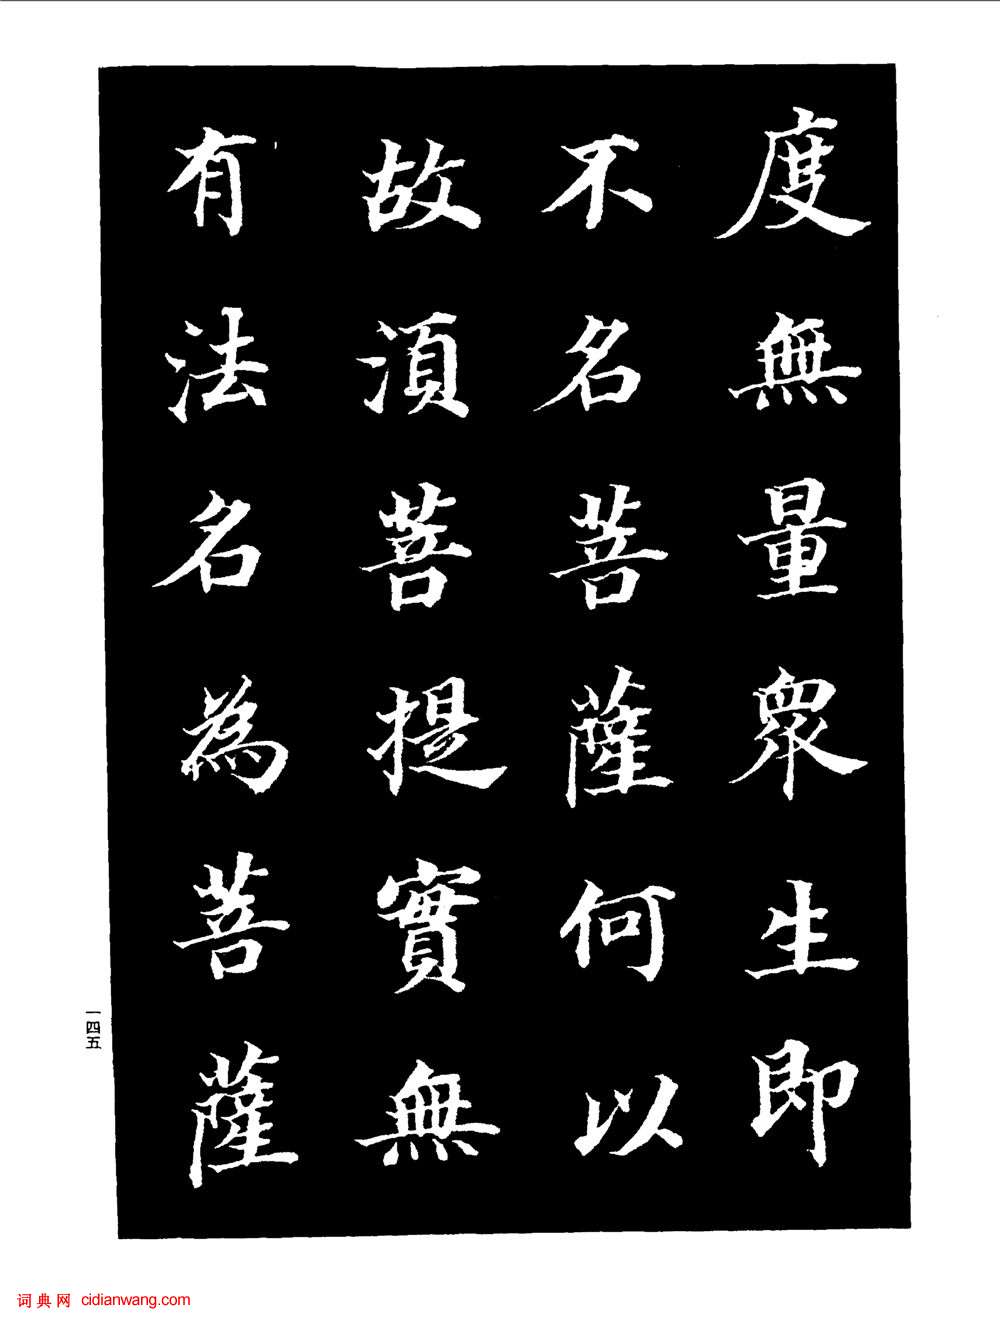 度無量衆生即
不名菩薩何以
故須菩提實無
有法名為菩薩
一四五
词典网 cidianwang.com